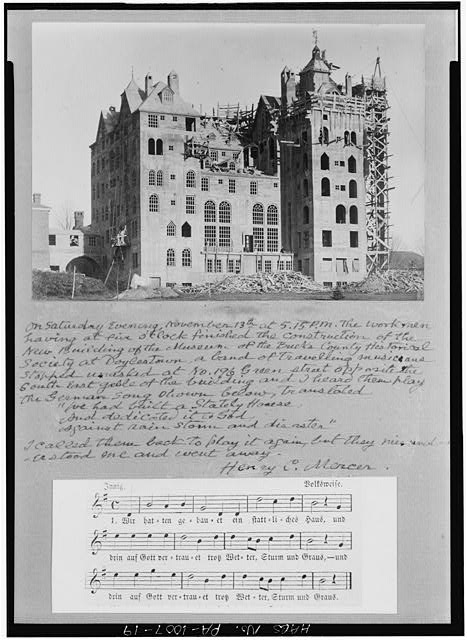 On Saturday Evening, November 13th at 5.15 P.M. The workmen
having at five o'clock finished the construction of the
New Building of the Museum of the Bucks County Historical
Society at Doylestown a band of Travelling musicians
stopped unasked at No. 196 Green street opposite the
South East gable of the building and I heard them play
the German Song shown below, translated
"We had built a Stately House
And dedicated it to God
Against rain storm and disaster"
I called them back to play it again, but they misund-
-erstood me and went away.
Henry C. Mercer.
Innig. Volksweise.
1. Wir hat-ten ge-bau-et ein statt-li-ches Haus, und
drin auf Gott ver-trau-et trotz Wet-ter, Sturm und Graus,—und
drin auf Gott ver-trau-et trotz Wet-ter, Sturm und Graus.
HABS No. PA-1007-19